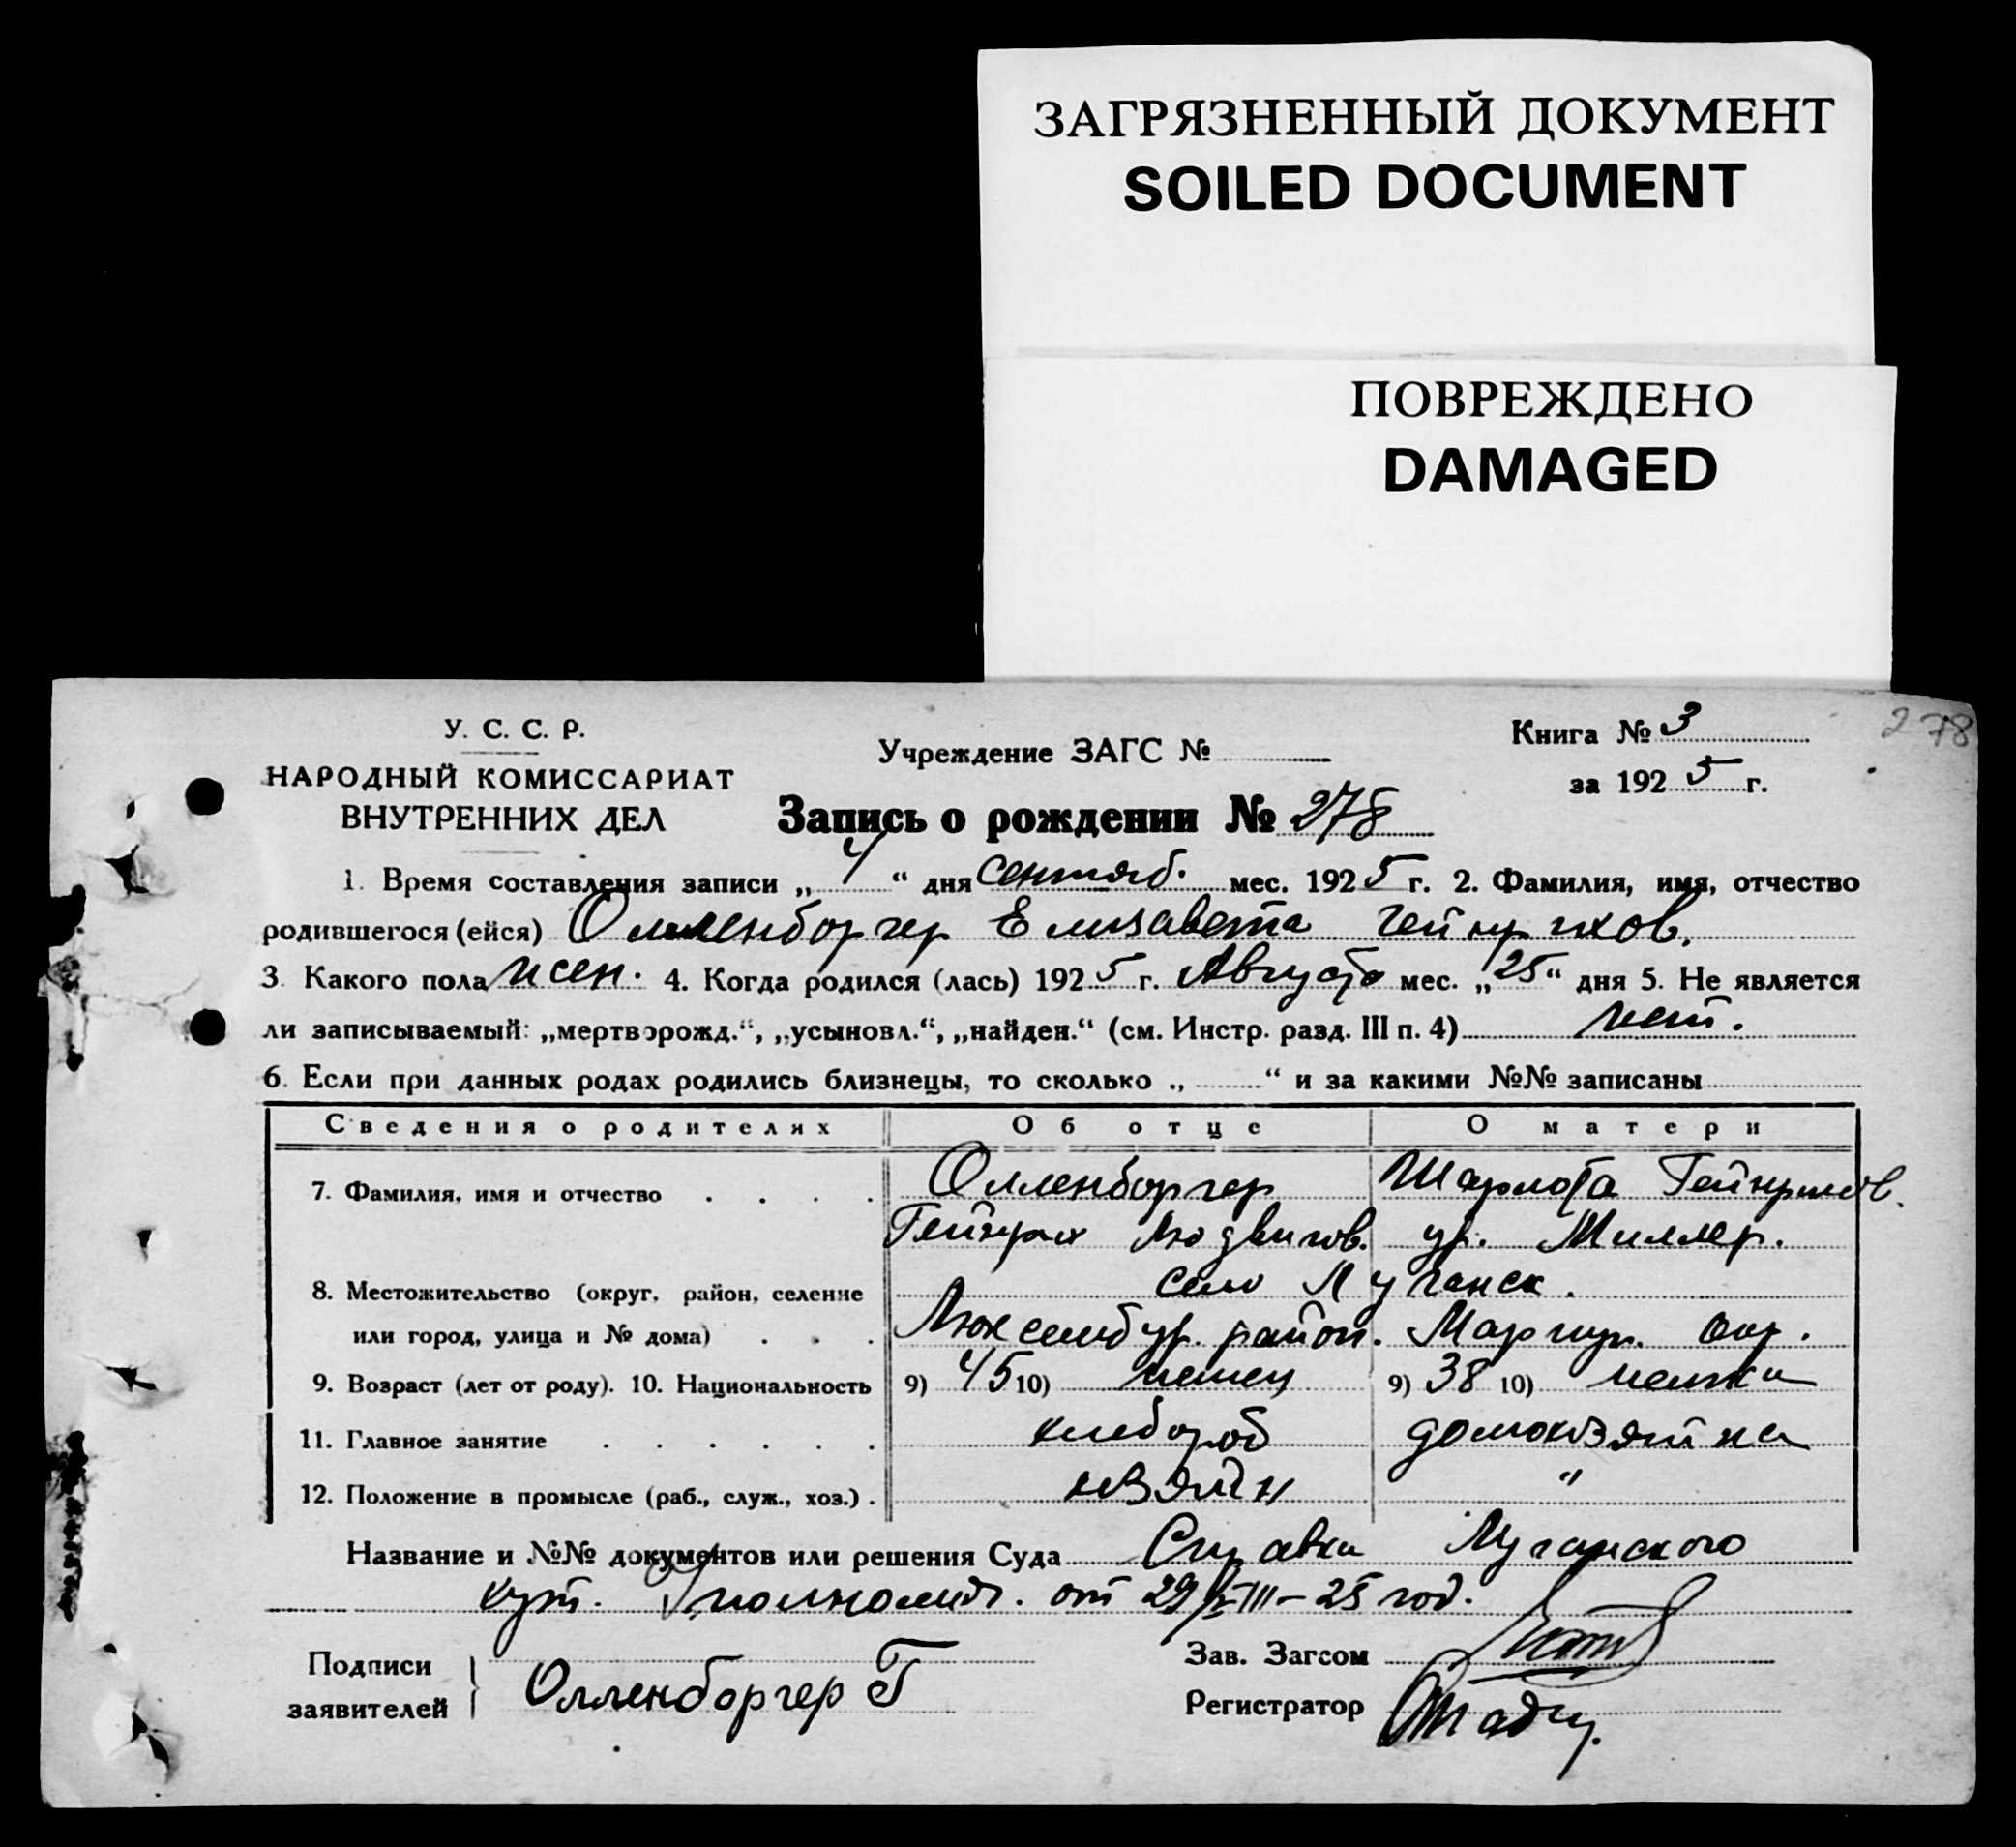 ЗАГРЯЗНЕННЫЙ ДОКУМЕНТ
SOILED DOCUMENT
ПОВРЕЖДЕНО
DAMAGED
278
У. С. С. Р.
НАРОДНЫЙ КОМИССАРИАТ
ВНУТРЕННИХ ДЕЛ
Учреждение ЗАГС №
Книга № 3
за 1925 г.
Запись о рождении № 278
1. Время составления записи „4“ дня сентяб. мес. 1925 г. 2. Фамилия, имя, отчество
родившегося (ейся) Олленборгер Елизавета Гейнрихов.
3. Какого пола жен. 4. Когда родился (лась) 1925 г. Августа мес. „25“ дня 5. Не является
ли записываемый: „мертворожд.“, „усыновл.“, „найден.“ (см. Инстр. разд. III п. 4) нет.
6. Если при данных родах родились близнецы, то сколько „ “ и за какими №№ записаны
Сведения о родителях Об отце О матери
7. Фамилия, имя и отчество Олленборгер Шарлота Гейнрихов.
Гейнрих Людвигов. ур. Миллер.
8. Местожительство (округ, район, селение село Луганск.
или город, улица и № дома) Люксембур. район. Мариуп. окр.
9. Возраст (лет от роду). 10. Национальность 9) 45 10) немец 9) 38 10) немка
11. Главное занятие хлебороб домохозяйка
12. Положение в промысле (раб., служ., хоз.) хозяин "
Название и №№ документов или решения Суда Справка Луганского
от 29/VIII-25 год.
Подписи
заявителей Олленборгер Г
Зав. Загсом
Регистратор